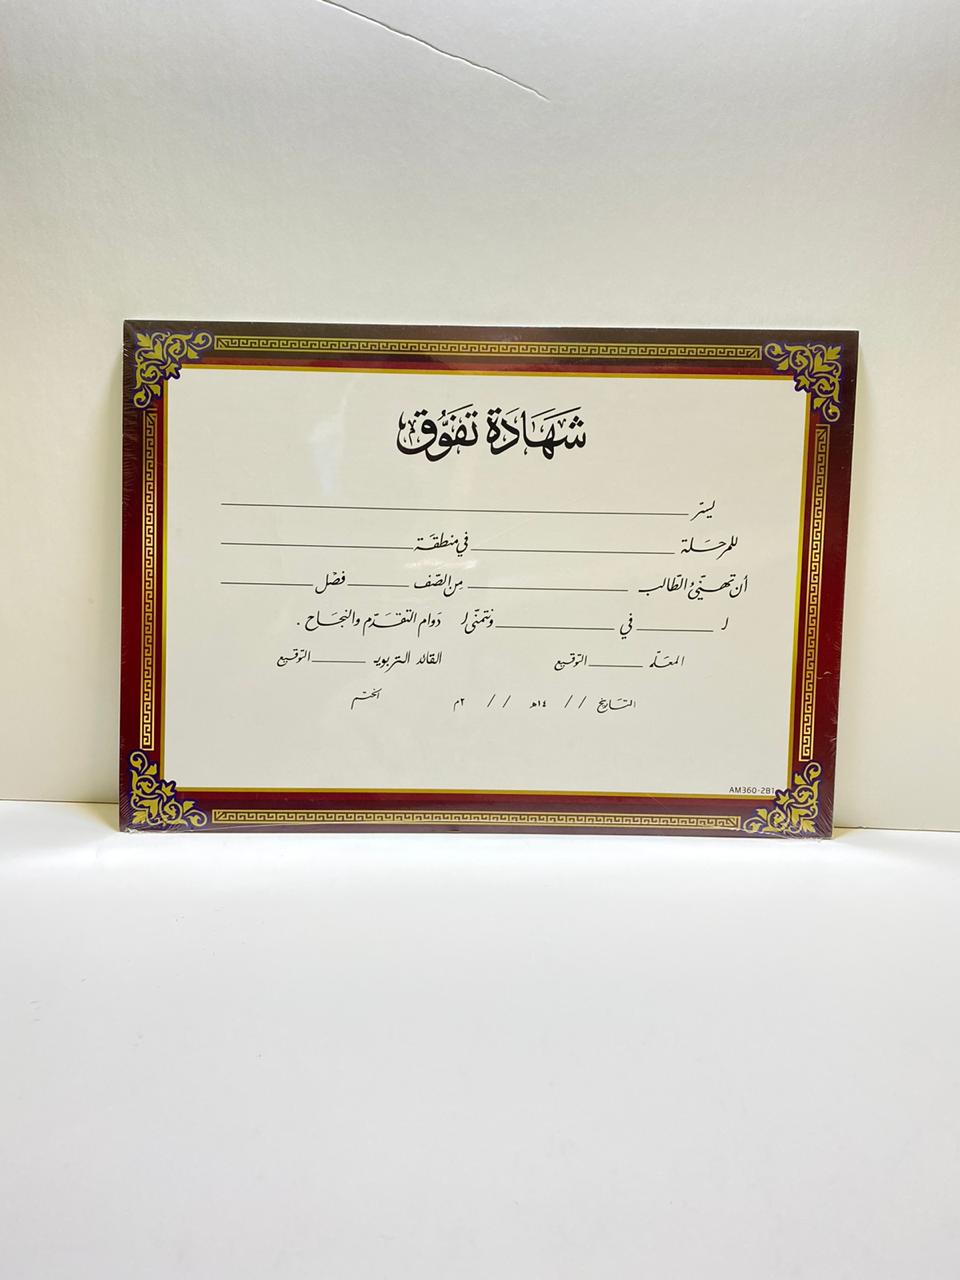 شَهَادَة تَفَوُّق
يسرّ
للمرحَلة في منطقَة
أن تهنيّءُ الطّالب مِن الصّف فصْل
لـ في ونتمنّى لـ دَوام التقدّم والنجَاح .
المعَلّم التوقيع القائد التربوي التوقيع
التَاريخ / / ١٤هـ / / ٢م الختم
AM360-2B1